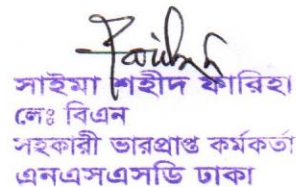 সাইমা শহীদ ফারিহা
লেঃ বিএন
সহকারী ভারপ্রাপ্ত কর্মকর্তা
এনএসএসডি ঢাকা